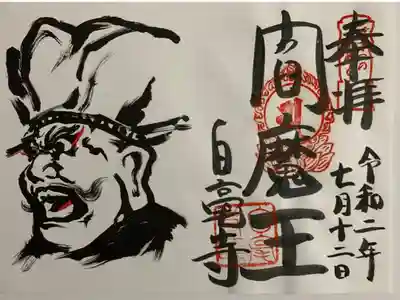 奉拝
令和二年
七月十二日
閻魔王
白竜寺